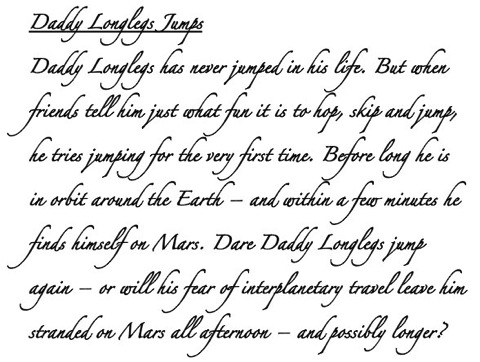 Daddy Longlegs Jumps
Daddy Longlegs has never jumped in his life. But when
friends tell him just what fun it is to hop, skip and jump,
he tries jumping for the very first time. Before long he is
in orbit around the Earth – and within a few minutes he
finds himself on Mars. Dare Daddy Longlegs jump
again – or will his fear of interplanetary travel leave him
stranded on Mars all afternoon – and possibly longer?